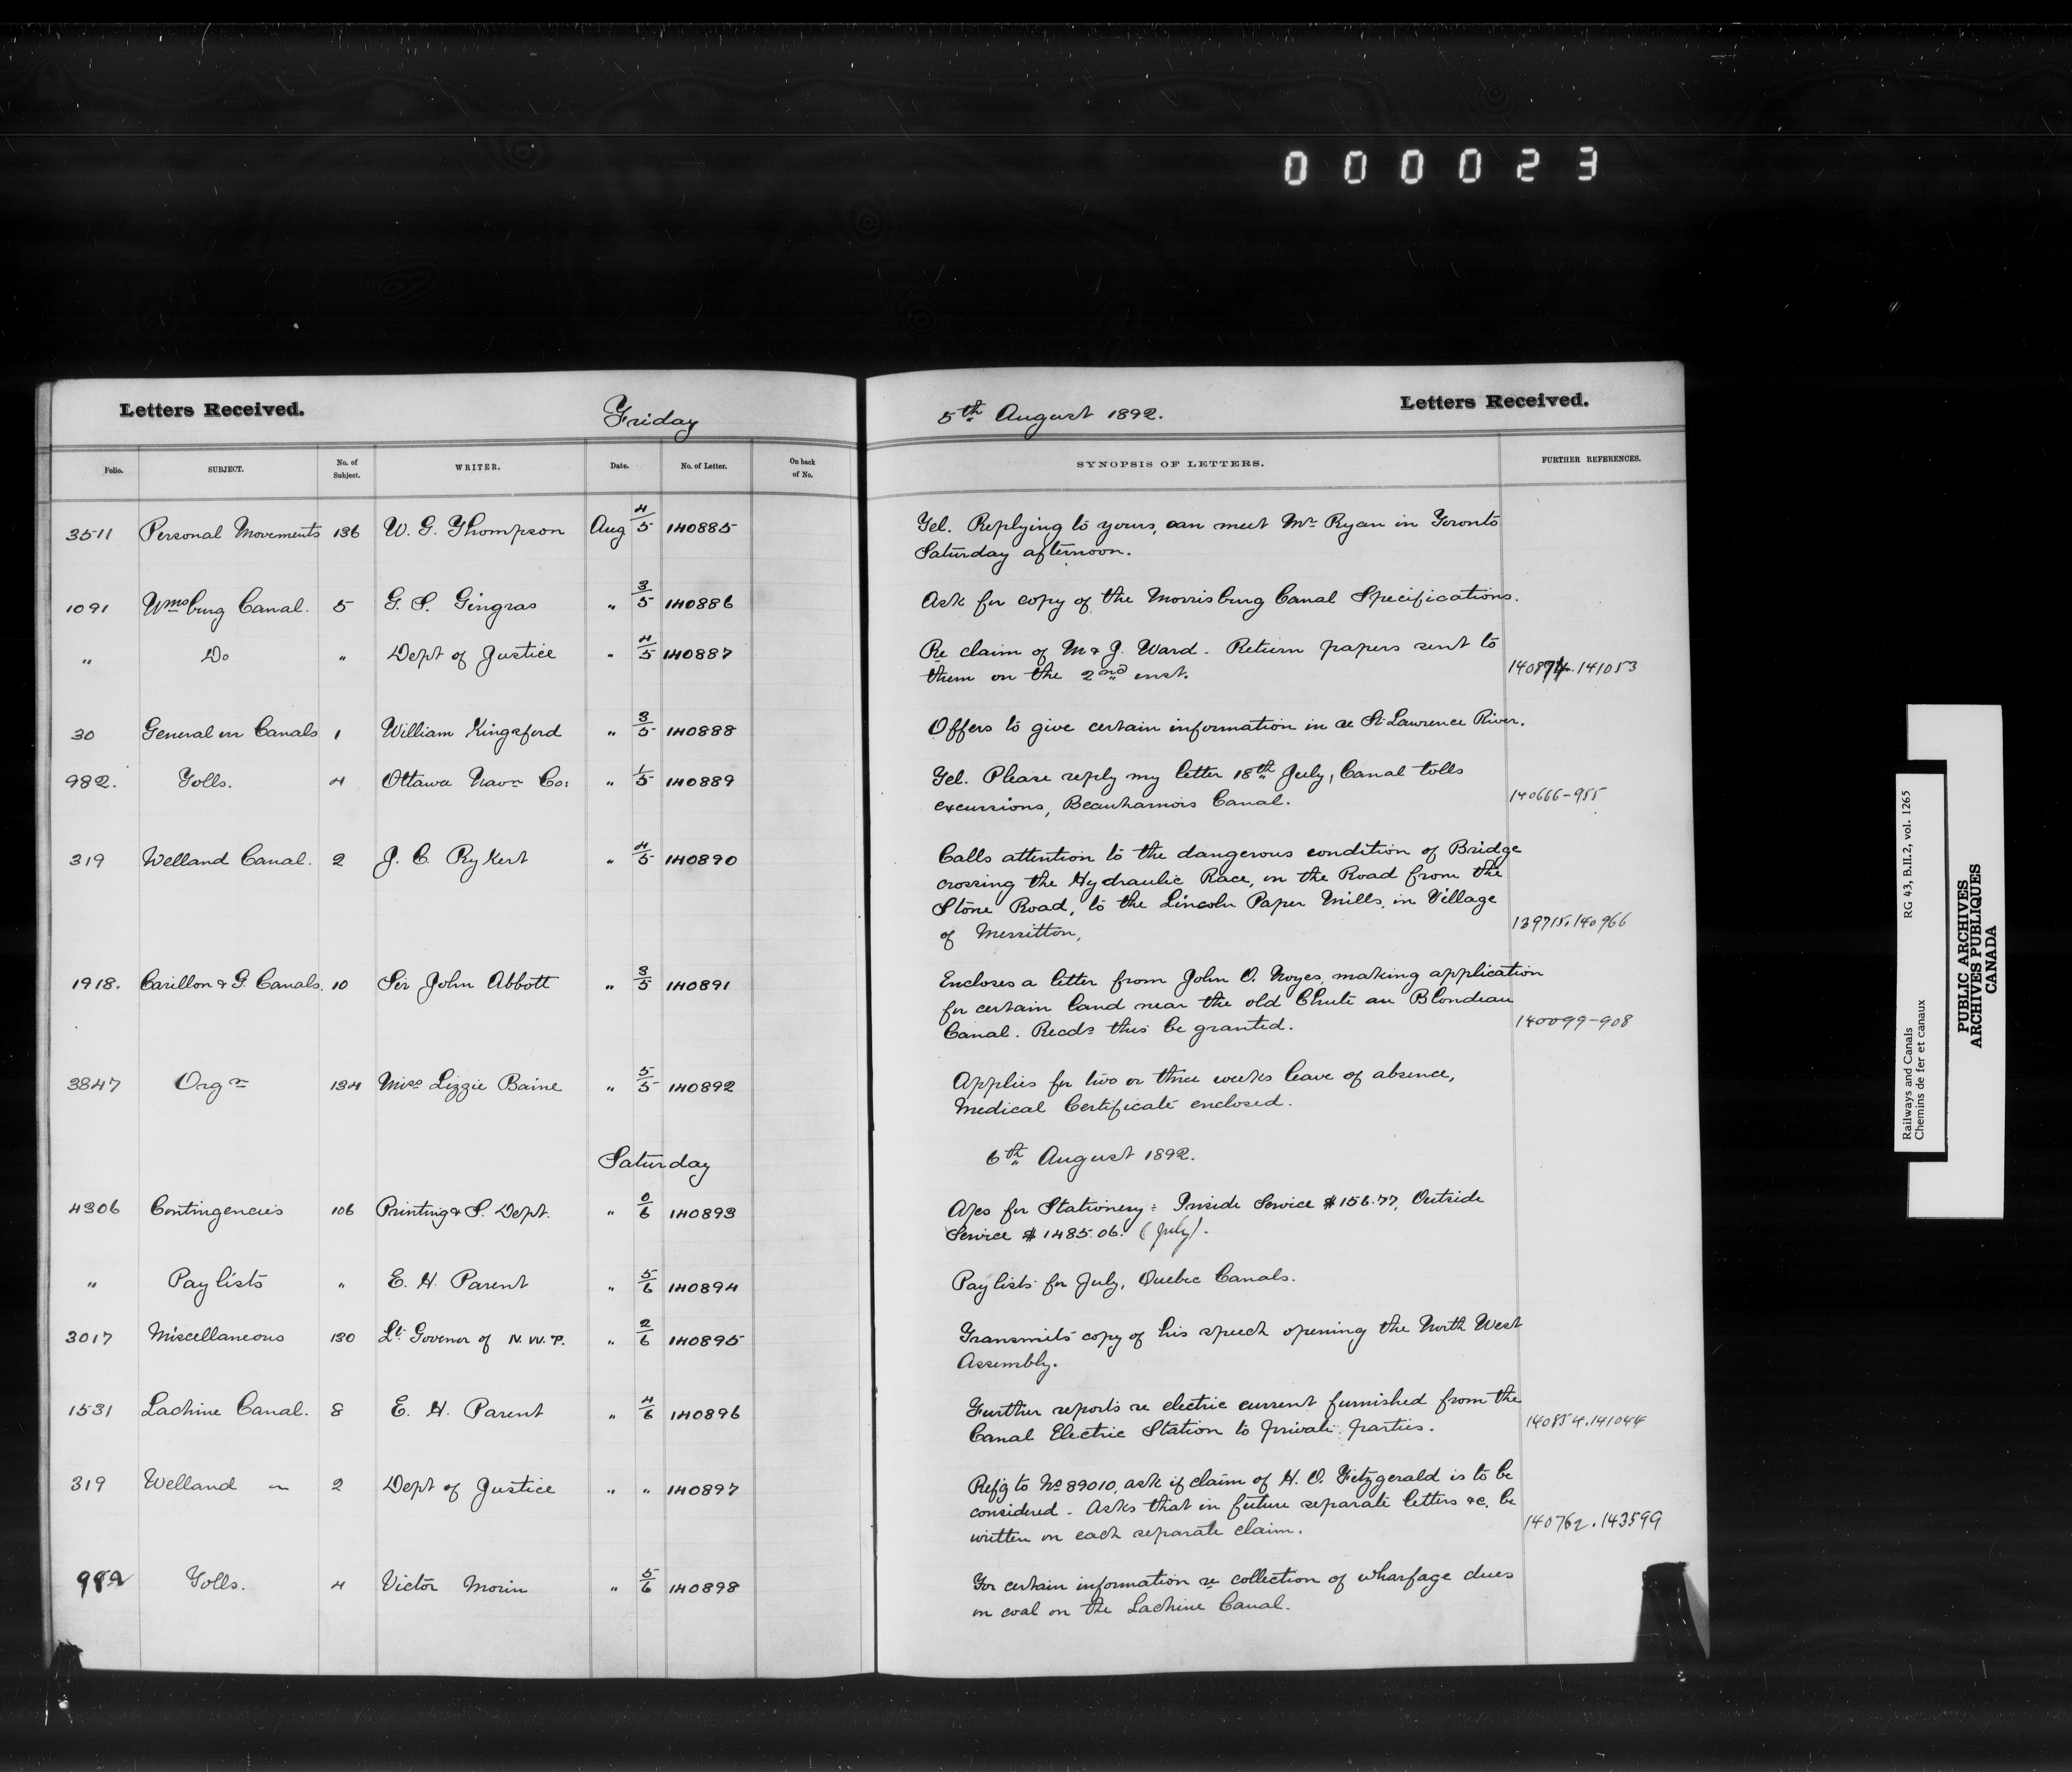 000023
Letters Received.
Friday
5th August 1892.
Letters Received.
Folio. SUBJECT. No. of Subject. WRITER. Date. No. of Letter. On back of No. SYNOPSIS OF LETTERS. FURTHER REFERENCES.
3511 Personal Movements 136 W. G. Thompson Aug 4/5 140885 Tel. Replying to yours, can meet Mr Ryan in Toronto
Saturday afternoon.
1091 Wmsburg Canal. 5 G. S. Gingras " 3/5 140886 Ask for copy of the Morrisburg Canal Specifications.
" Do " Dept of Justice " 4/5 140887 Re claim of M & J. Ward. Return papers sent to
them on the 2nd inst. 140874.141053
30 General on Canals 1 William Kingsford " 3/5 140888 Offers to give certain information in re St. Lawrence River.
982. Tolls. 4 Ottawa Navn Co: " 1/5 140889 Tel. Please reply my letter 18th July, Canal tolls
excursions, Beauharnois Canal. 140666-955
319 Welland Canal. 2 J. C. Rykert " 4/5 140890 Calls attention to the dangerous condition of Bridge
crossing the Hydraulic Race, on the Road from the
Stone Road, to the Lincoln Paper Mills, in Village
of Merritton, 139715.140966
1918. Carillon & G. Canals. 10 Sir John Abbott " 3/5 140891 Encloses a letter from John O. Noyes, making application
for certain land near the old Chute au Blondeau
Canal. Recds this be granted. 140099-908
3847 Orgn 134 Miss Lizzie Baine " 5/5 140892 Applies for two or three weeks leave of absence,
Medical Certificate enclosed.
Saturday 6th August 1892.
4306 Contingencies 106 Printing & S. Dept. " 0/6 140893 A/cs for Stationery: Inside Service $156.77, Outside
Service $1485.06. (July).
" Pay lists " E. H. Parent " 5/6 140894 Pay lists for July, Quebec Canals.
3017 Miscellaneous 130 Lt. Govenor of N.W.T. " 2/6 140895 Transmits copy of his speech opening the North West
Assembly.
1531 Lachine Canal. 8 E. H. Parent " 4/6 140896 Further reports re electric current furnished from the
Canal Electric Station to private parties. 140854.141044
319 Welland " 2 Dept of Justice " " 140897 Refg to No 89010, ask if claim of H. O. Fitzgerald is to be
considered. Asks that in future separate letters &c. be
written on each separate claim. 140762.143599
982 Tolls. 4 Victor Morin " 5/6 140898 For certain information re collection of wharfage dues
on coal on the Lachine Canal.
Railways and Canals RG 43, B.II.2, vol. 1265
Chemins de fer et canaux
PUBLIC ARCHIVES
ARCHIVES PUBLIQUES
CANADA